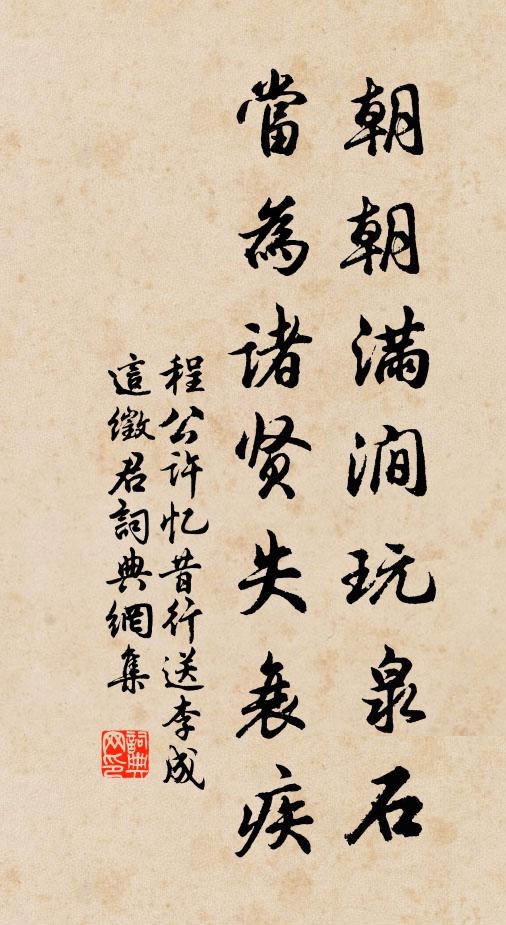 朝朝满涧玩泉石
當為诸贤失衰疾
程公许忆昔行送李成
這徵君詞典網集
詞典網印